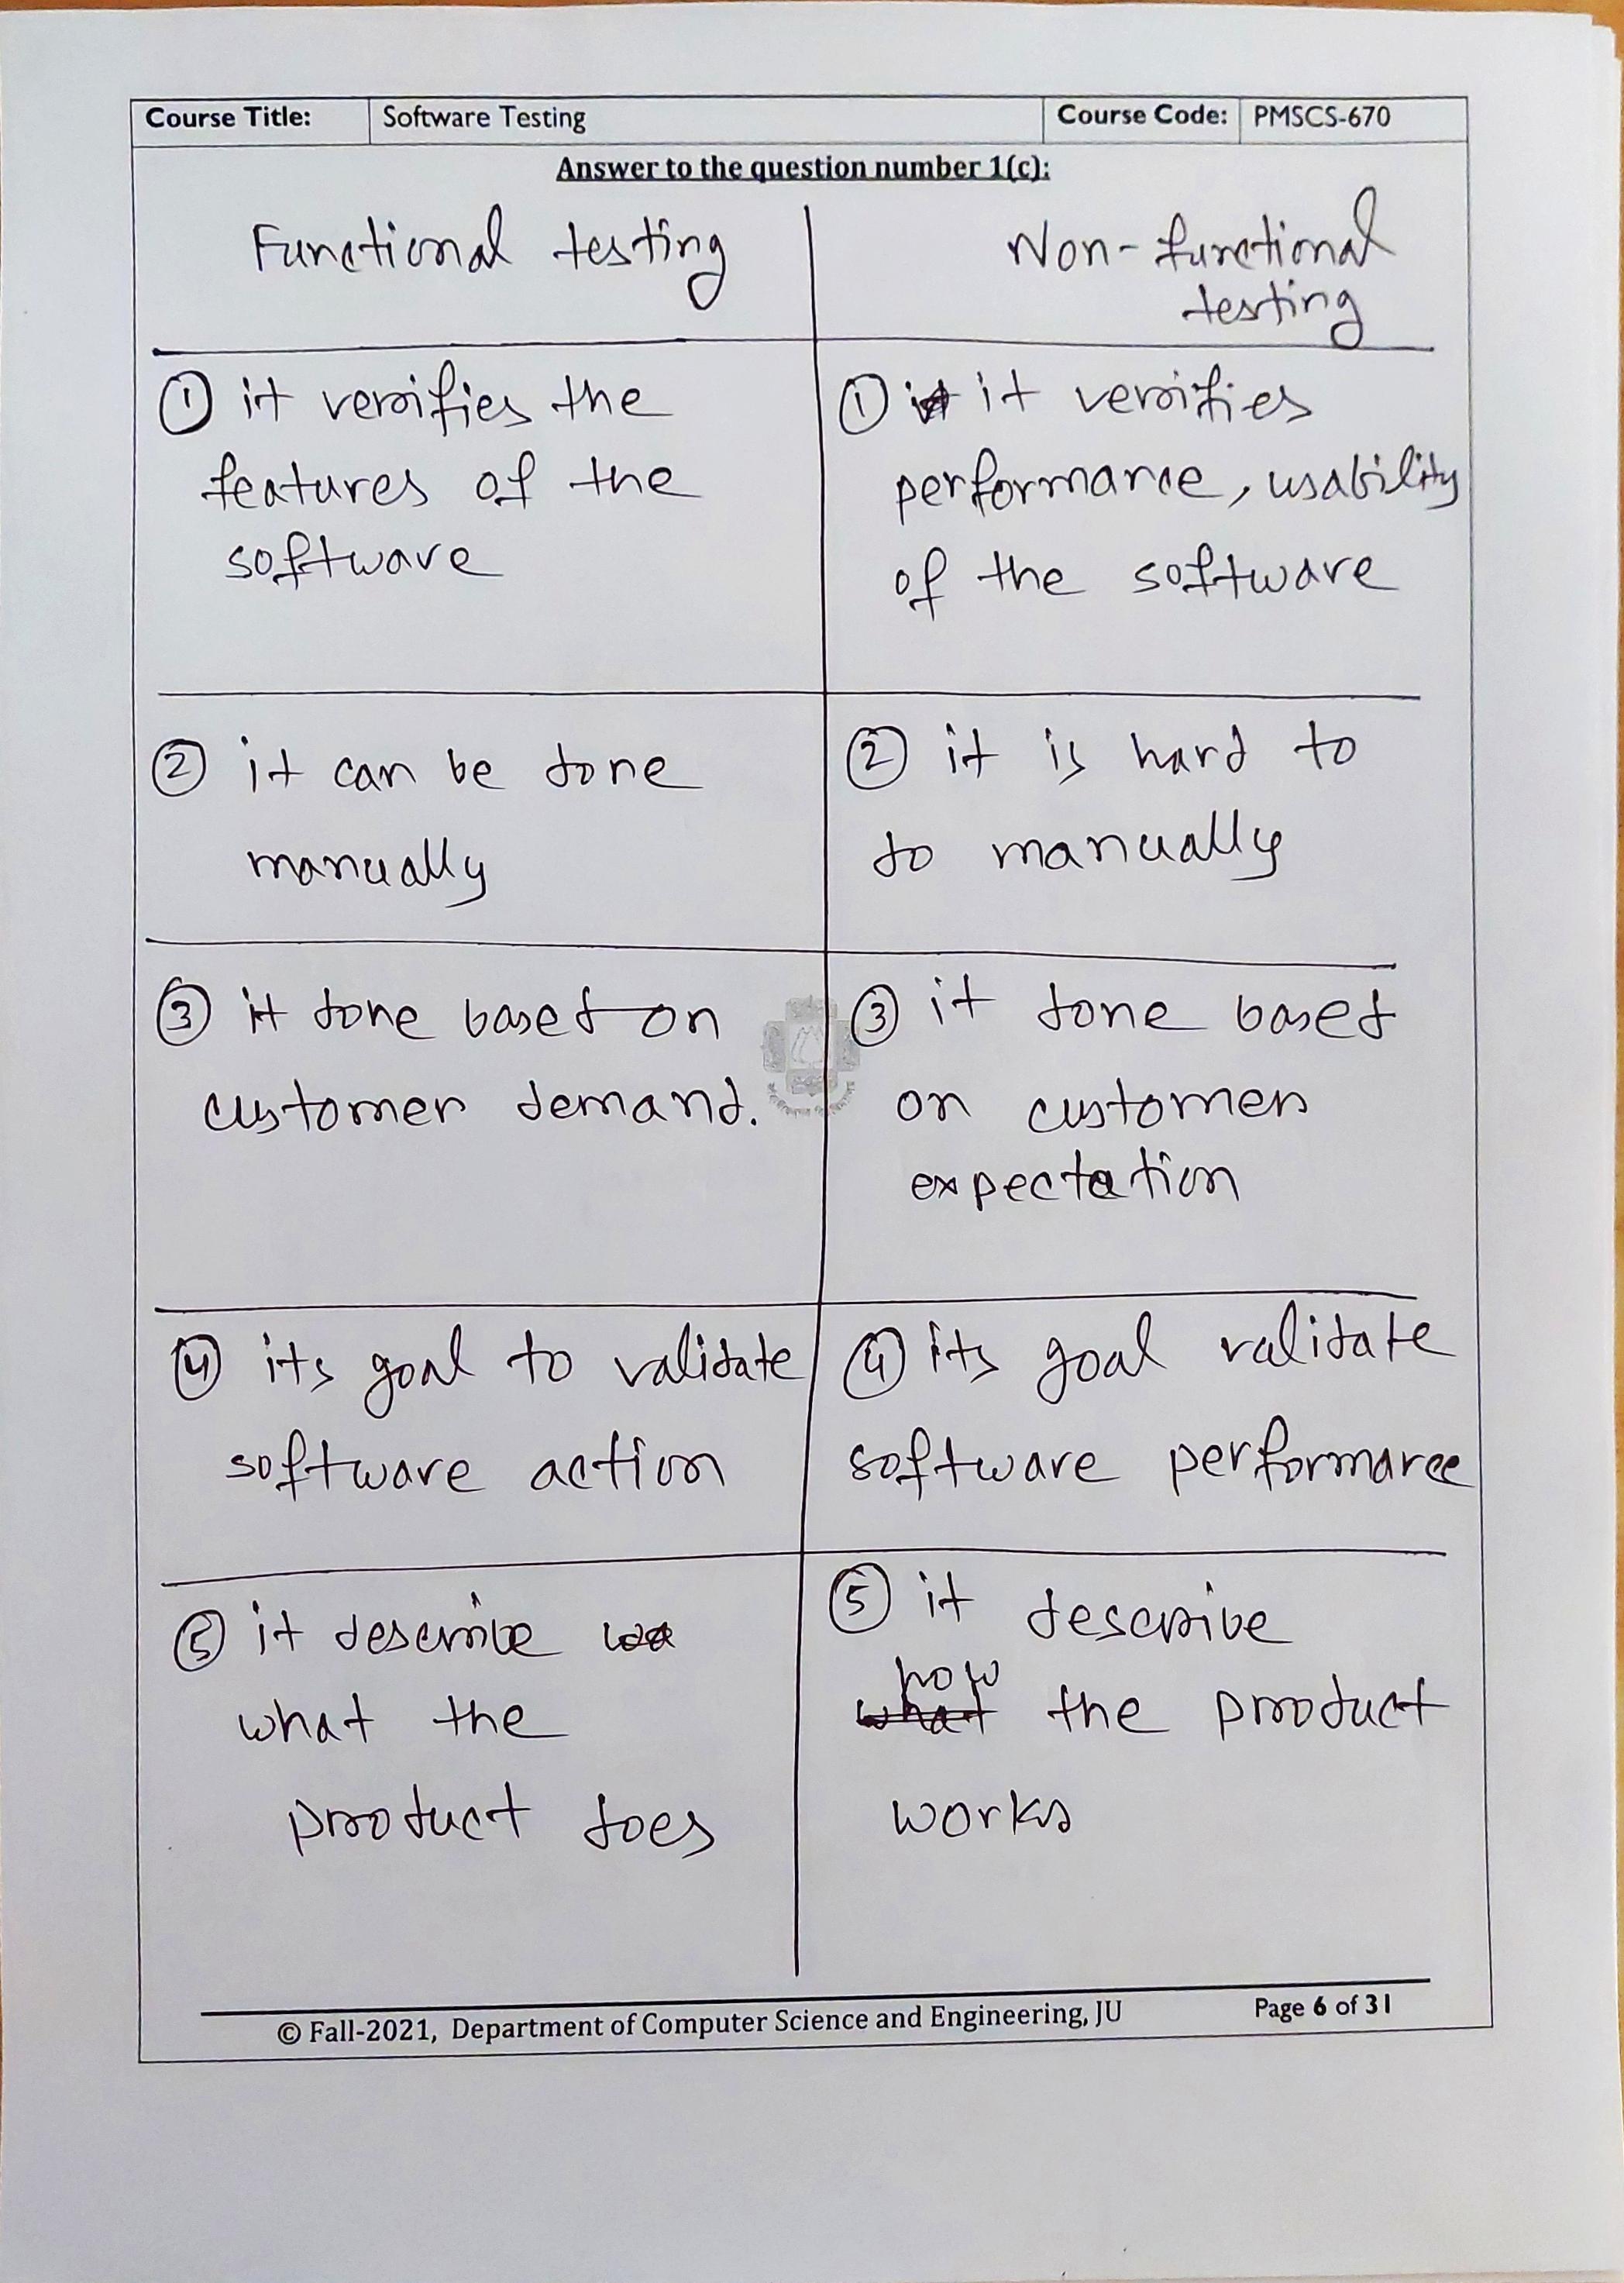 Course Title: Software Testing Course Code: PMSCS-670
Answer to the question number 1(c):
Functional testing
Non-functional
testing
① it verifies the
features of the
software
① it it verifies
performance, usability
of the software
② it can be done
manually
② it is hard to
do manually
③ it done based on
customer demand.
③ it done based
on customer
expectation
④ its goal to validate
software action
④ its goal validate
software performance
⑤ it describe
what the
product does
⑤ it describe
how
what the product
works
© Fall-2021, Department of Computer Science and Engineering, JU Page 6 of 31